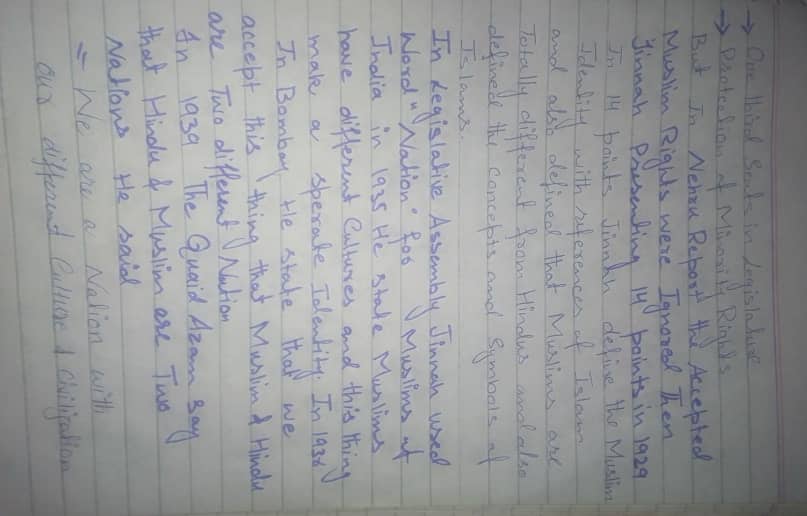 → One third Seats in Legislature
→ Protection of Minority Rights
But In Nehru Report the Accepted
Muslim Rights were Ignored Then
Jinnah Presenting 14 points in 1929
In 14 points Jinnah define the Muslim
Identity with references of Islam
and also defined that Muslims are
Totally different from Hindus and also
defined the concepts and Symbols of
Islams.
In Legislative Assembly Jinnah used
Word "Nation" for Muslims of
India in 1935 He state Muslims
have different Cultures and this thing
make a sperate Identity. In 1936
In Bombay He state that we
accept this thing that Muslim & Hindu
are Two different Nation
In 1939 The Quaid Azam say
that Hindu & Muslim are Two
Nations He said
" We are a Nation with
our different Culture & Civilization